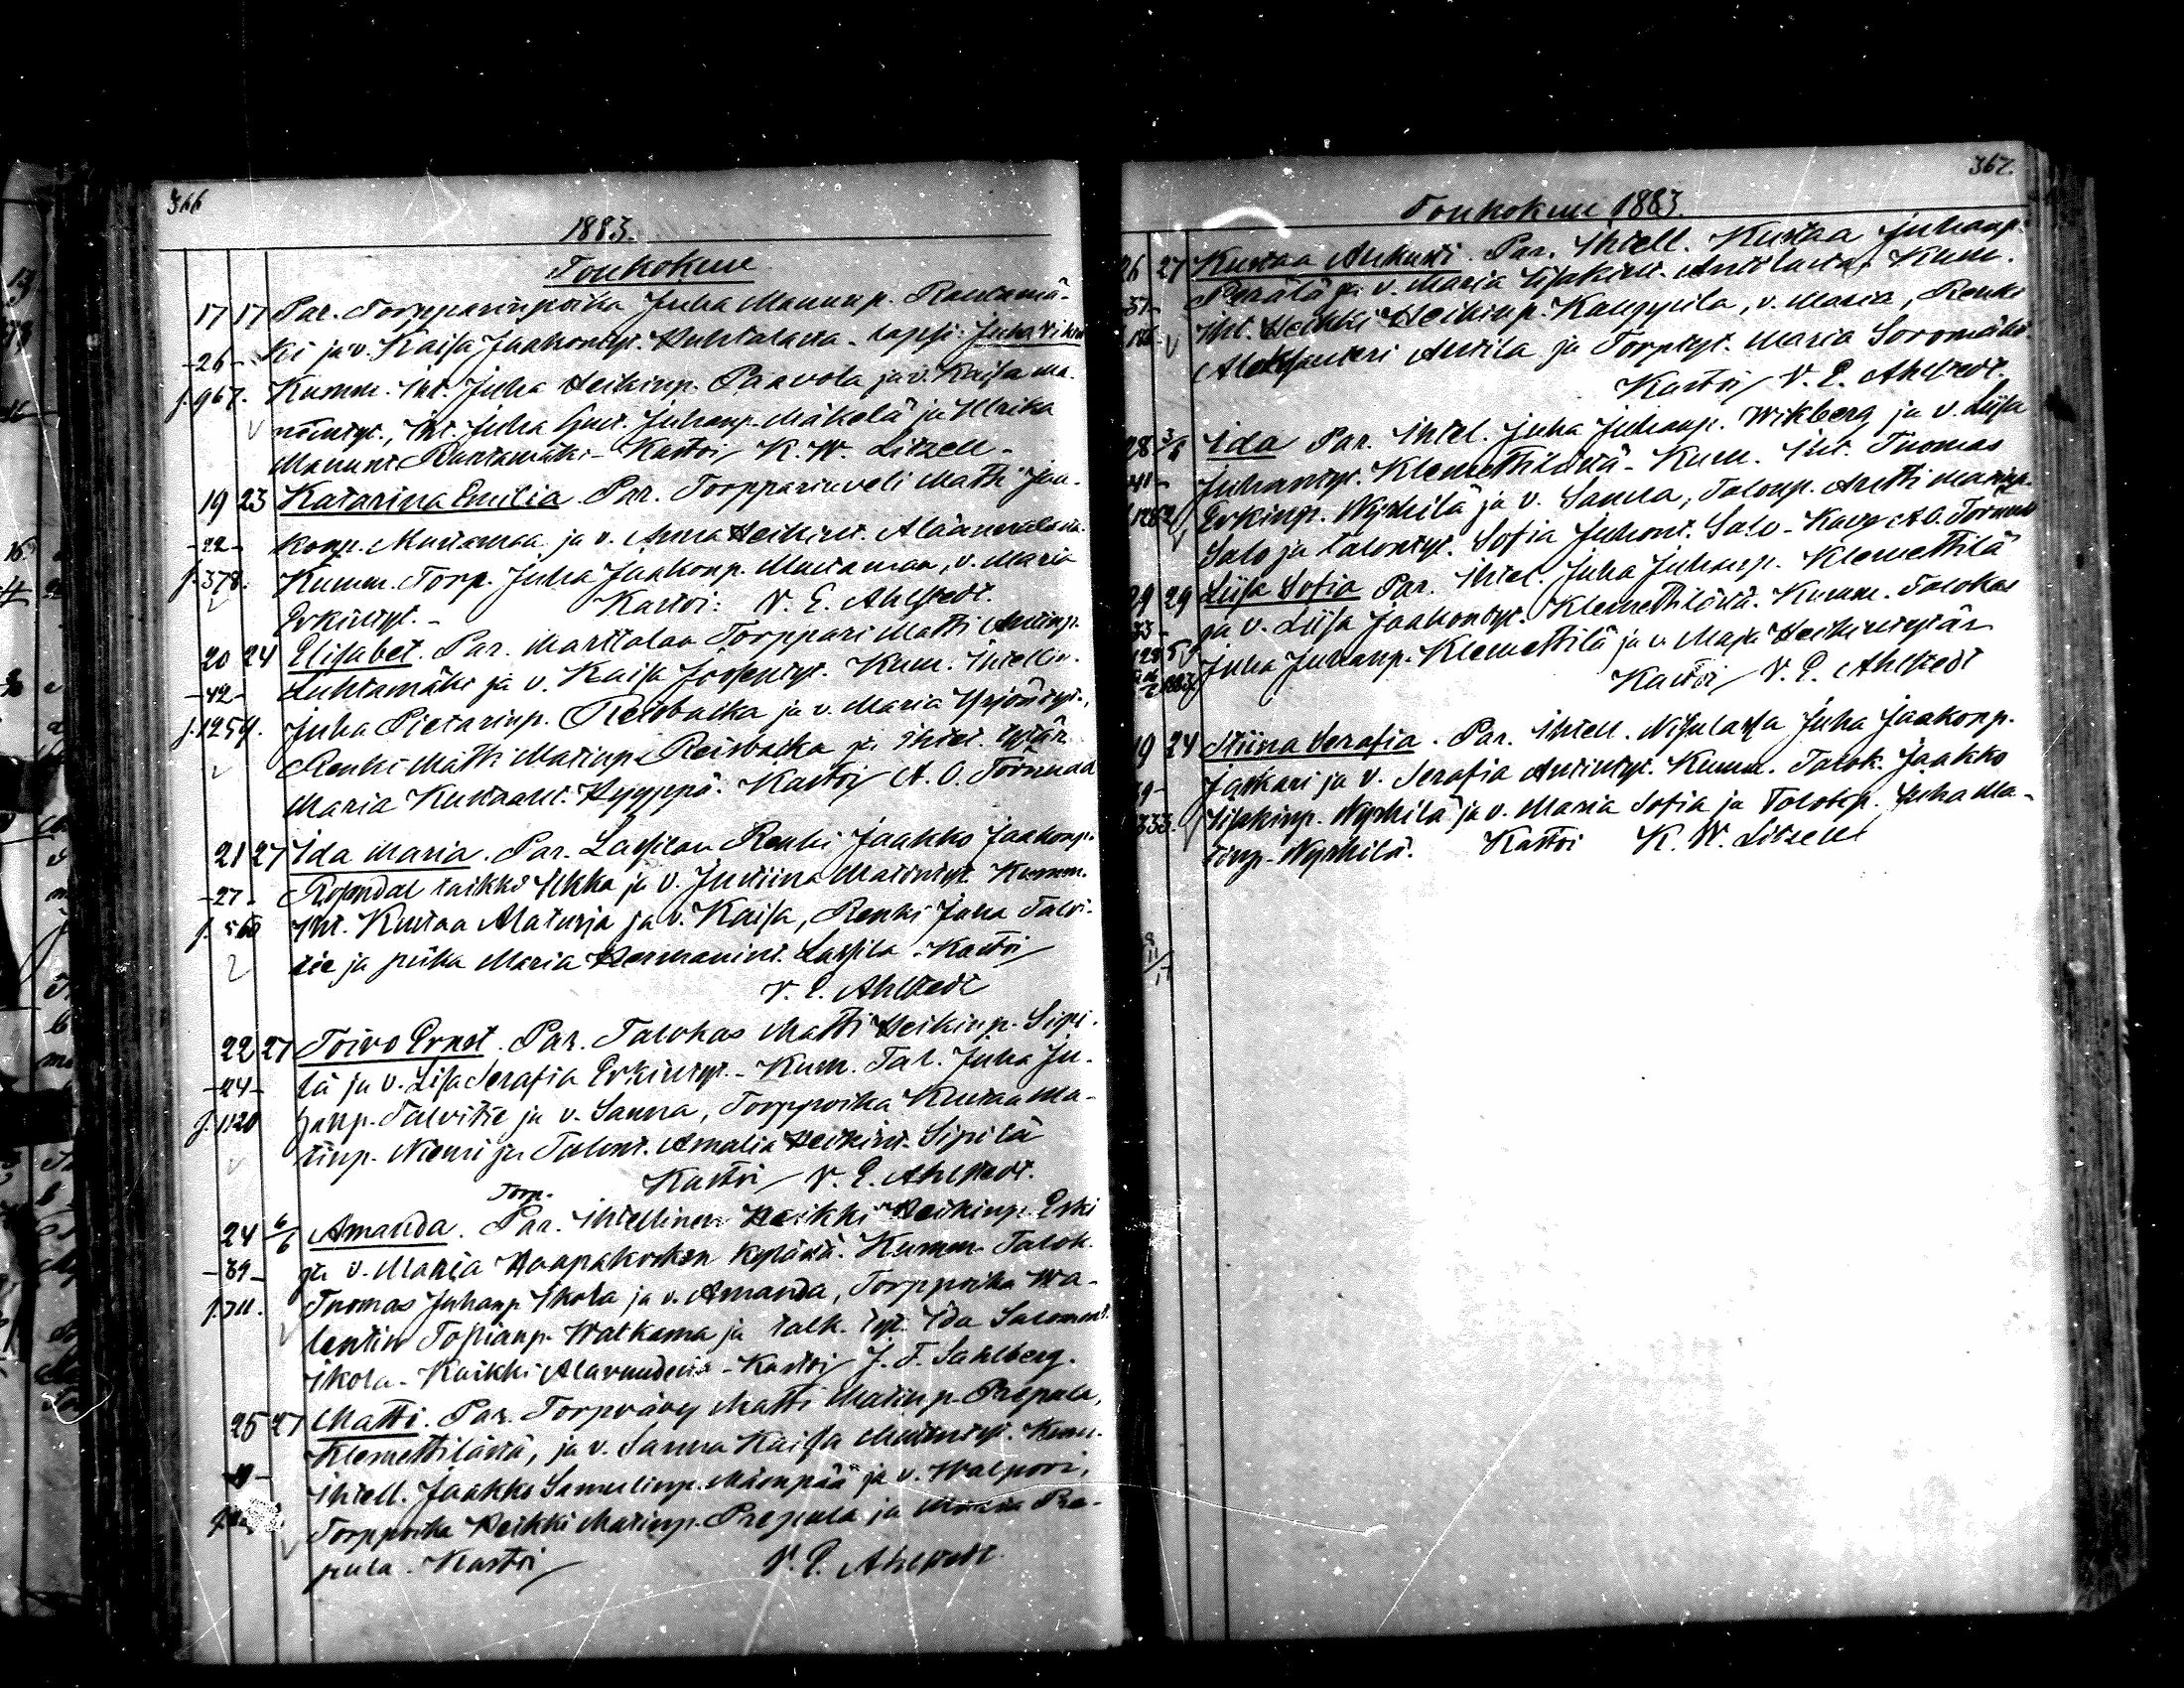 366
1883.
Toukokuu
17 17 Par. Torpparinpoika Juha Mannunp. Rantamä-
-26- ki ja v. Kaisa Jaakontyt. Huhtalasta - lapsi: Juha Vihtori
f. 967. Kumm. Iht. Juha Heikinp. Paavola ja v. Kaisa Ma-
Iht. Juha Kust. Juhanp. Mäkelä ja Ulrika
Mannunt. Rantamäki - Kastoi K. W. Litzell -
19 23 Katarina Emilia. Par. Torpparinveli Matti Jaa-
-22- konp. Mustamaa ja v. Anna Heikint.
f. 378. Kumm. Torp. Juha Jaakonp. Mustamaa, v. Maria
Erkintyt. - Kastoi: V. E. Ahlstedt.
20 24 Elisabet. Par. Marttalan Torppari Matti Antinp.
-42- Luhtamäki ja v. Kaisa Joosepintyt. Kum. Ihtellin.
f. 1254. Juha Pietarinp. Reisbacka ja v. Maria Yrjöntyt.,
Renki Matti Matinp. Reisbacka ja Ihtel. tytär
Maria Kustaant. Hyyppä. Kastoi A. O. Törnudd
21 27 Ida Maria. Par. Lassilan Renki Jaakko Jaakonp.
-27- Rosendal taikka Ukka ja v. Justiina Matintyt. Kumm.
f. 560 Iht. Kustaa Alaturja ja v. Kaisa, Renki Juha Talvi-
tie ja piika Maria Hermanint. Lassila. Kastoi
V. E. Ahlstedt
22 27 Toivo Ernst. Par. Talokas Matti Heikinp. Sipi-
-24- lä ja v. Lisa Serafia Erkintyt. - Kum. Tal. Juha Ju-
f. 1120 hanp. Talvitie ja v. Sanna, Torppoika Kustaa Ma-
tinp. Niemi ja Talont. Amalia Heikint. Sipilä
Kastoi V. E. Ahlstedt.
Torp.
24 6/6 Amanda. Par. Ihtellinen Heikki Heikinp. Eski
-39- ja v. Maria Haapakosken kylästä. Kumm. Talok.
f. 711. Tuomas Juhanp. Ikola ja v. Amanda, Torppoika Wa-
lentin Topianp. Watkama ja talk. tyt. Ida Salomont.
Ikola - Kaikki Alavuudesta - Kastoi J. F. Sahlberg.
25 27 Matti. Par. Torpvävy Matti Matinp. Prepula,
Klemettilästä, ja v. Sanna Kaisa Matintyt. Kum.
Ihtell. Jaakko Samelinp. Mäenpää ja v. Walpori,
Torppoika Heikki Matinp. Prepula ja Maria Pre-
pula. Kastoi V. E. Ahlstedt.
367.
Toukokuu 1883.
26 27 Kustaa Aukusti. Par. Ihtell. Kustaa Juhanp.
37- Perälä ja v. Maria Iisakint. Anttilasta. Kum.
Iht. Heikki Heikinp. Kauppila, v. Maria, Renki
Aleksanteri Anttila ja Torptyt. Maria Soromäki.
Kastoi V. E. Ahlstedt.
28 3/6 Ida Par. Ihtel. Juha Juhanp. Wikberg ja v. Liisa
41- Juhantyt. Klemettilästä - Kum. Iht. Tuomas
Erkinp. Nyrhilä ja v. Sanna, Talonp. Antti Matinp.
Salo ja talontyt. Sofia Juhont. Salo - Kast. A. O. Törnudd
29 29 Liisa Sofia Par. Ihtel. Juha Juhanp. Klemettilä
33- ja v. Liisa Jaakontyt. Klemettilästä. Kumm. Talokas
Juha Juhanp. Klemettilä ja v. Maja Heikintytär
Kastoi V. E. Ahlstedt
19 24 Stiina Serafia. Par. Ihtell. Nisulassa Juha Jaakonp.
Jaskari ja v. Serafia Antintyt. Kumm. Talok. Jaakko
333. Iisakinp. Nyrhilä ja v. Maria Sofia ja Talokp. Juha Ma-
tinp. Nyrhilä. Kastoi K. W. Litzell